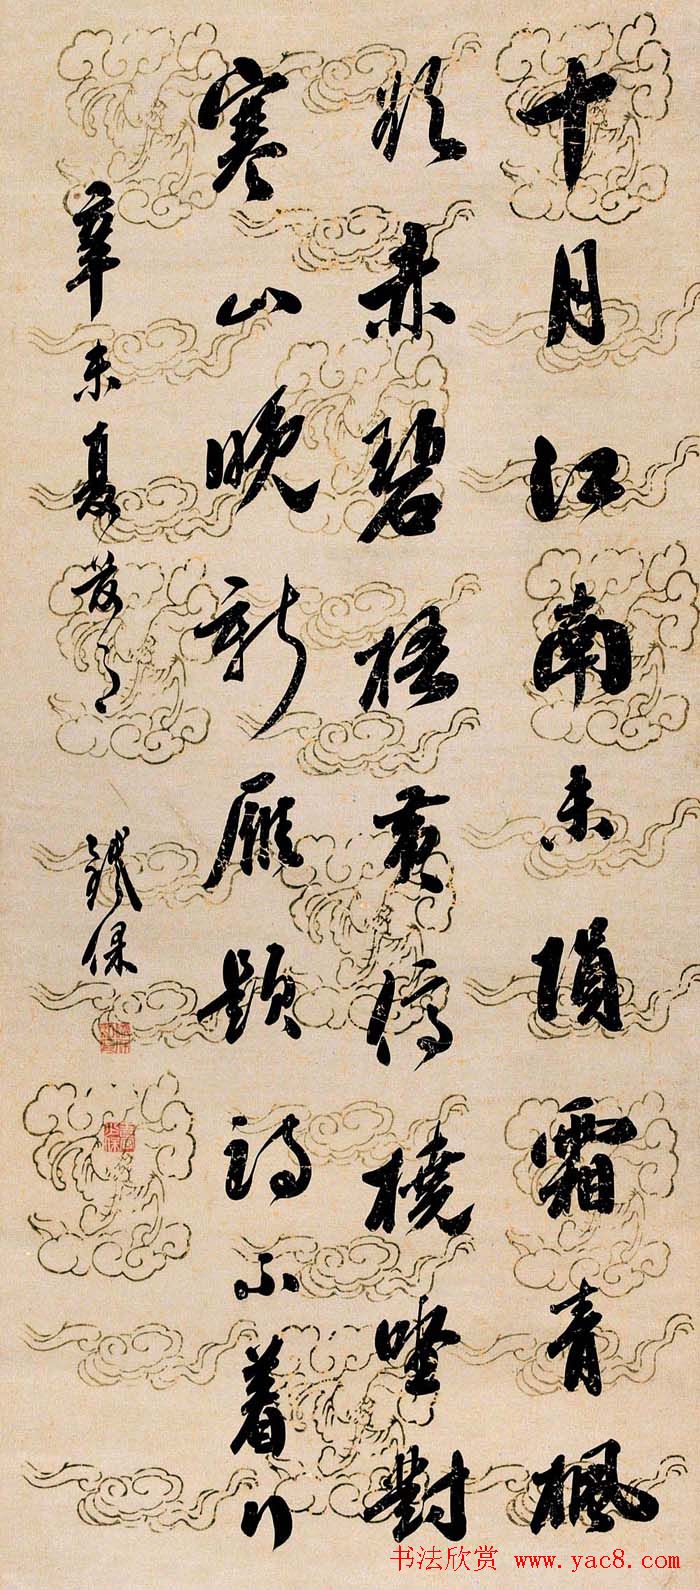 十月江南未隕霜青楓
欲赤碧梧黄停橈坐對
寒山晚新雁題詩小着行
辛未夏
鐵保
书法欣赏 www.yac8.com